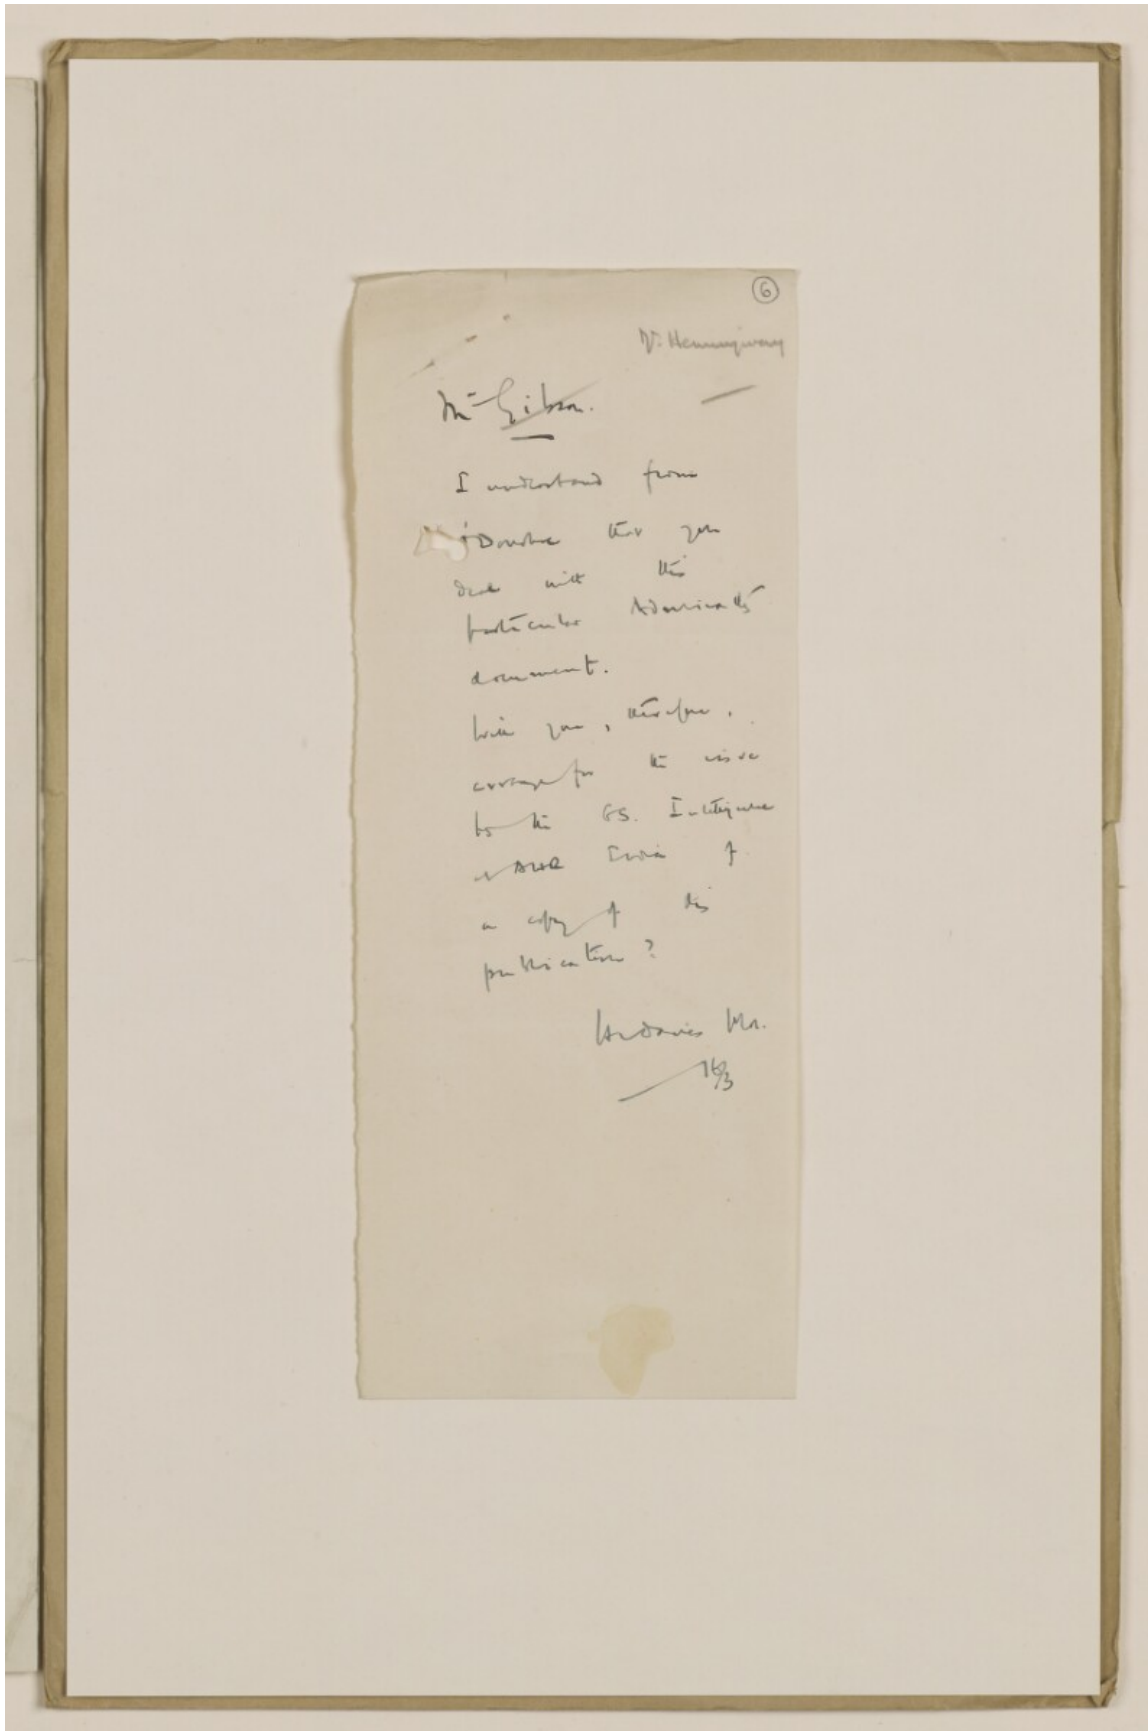 6
Mr. Hemingway
Mr Gibson.
I understand from
O'Donohoe that you
deal with this
particular Admiralty
document.
Will you, therefore,
arrange for the issue
to the GS. Intelligence
India of
a copy of this
publication?
Davies
16/3